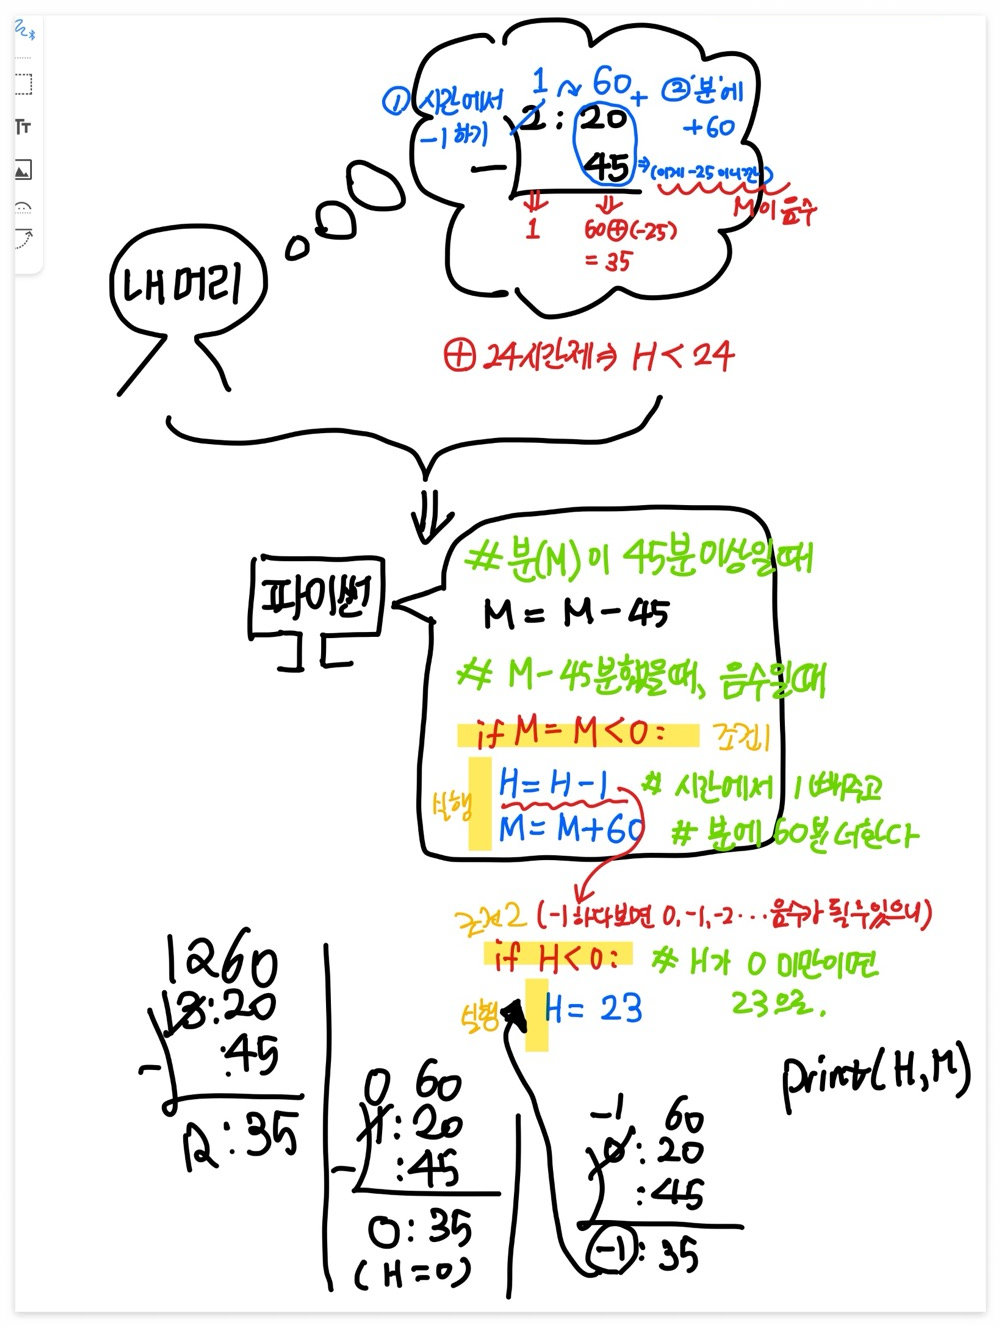 Tт
1 ↷ 60
① 시간에서
-1 하기
2 : 20
+
② '분'에
+60
- 45
⇒ (이게 -25 이니깐)
M이 음수
1
60⊕(-25)
= 35
내 머리
⊕ 24시간제 ⇒ H < 24
파이썬
# 분(M)이 45분 이상일 때
M = M - 45
# M - 45분했을 때, 음수일 때
if M = M < 0 : 조건1
실행
H = H - 1 # 시간에서 1 빼주고
M = M + 60 # 분에 60분 더한다
조건2 (-1 하다보면 0, -1, -2 ... 음수가 될 수 있으니)
if H < 0 : # H가 0 미만이면
23으로.
실행 H = 23
print(H, M)
12 60
13 : 20
- : 45
12 : 35
0 60
1 : 20
- : 45
0 : 35
(H = 0)
-1 60
0 : 20
: 45
-1 : 35